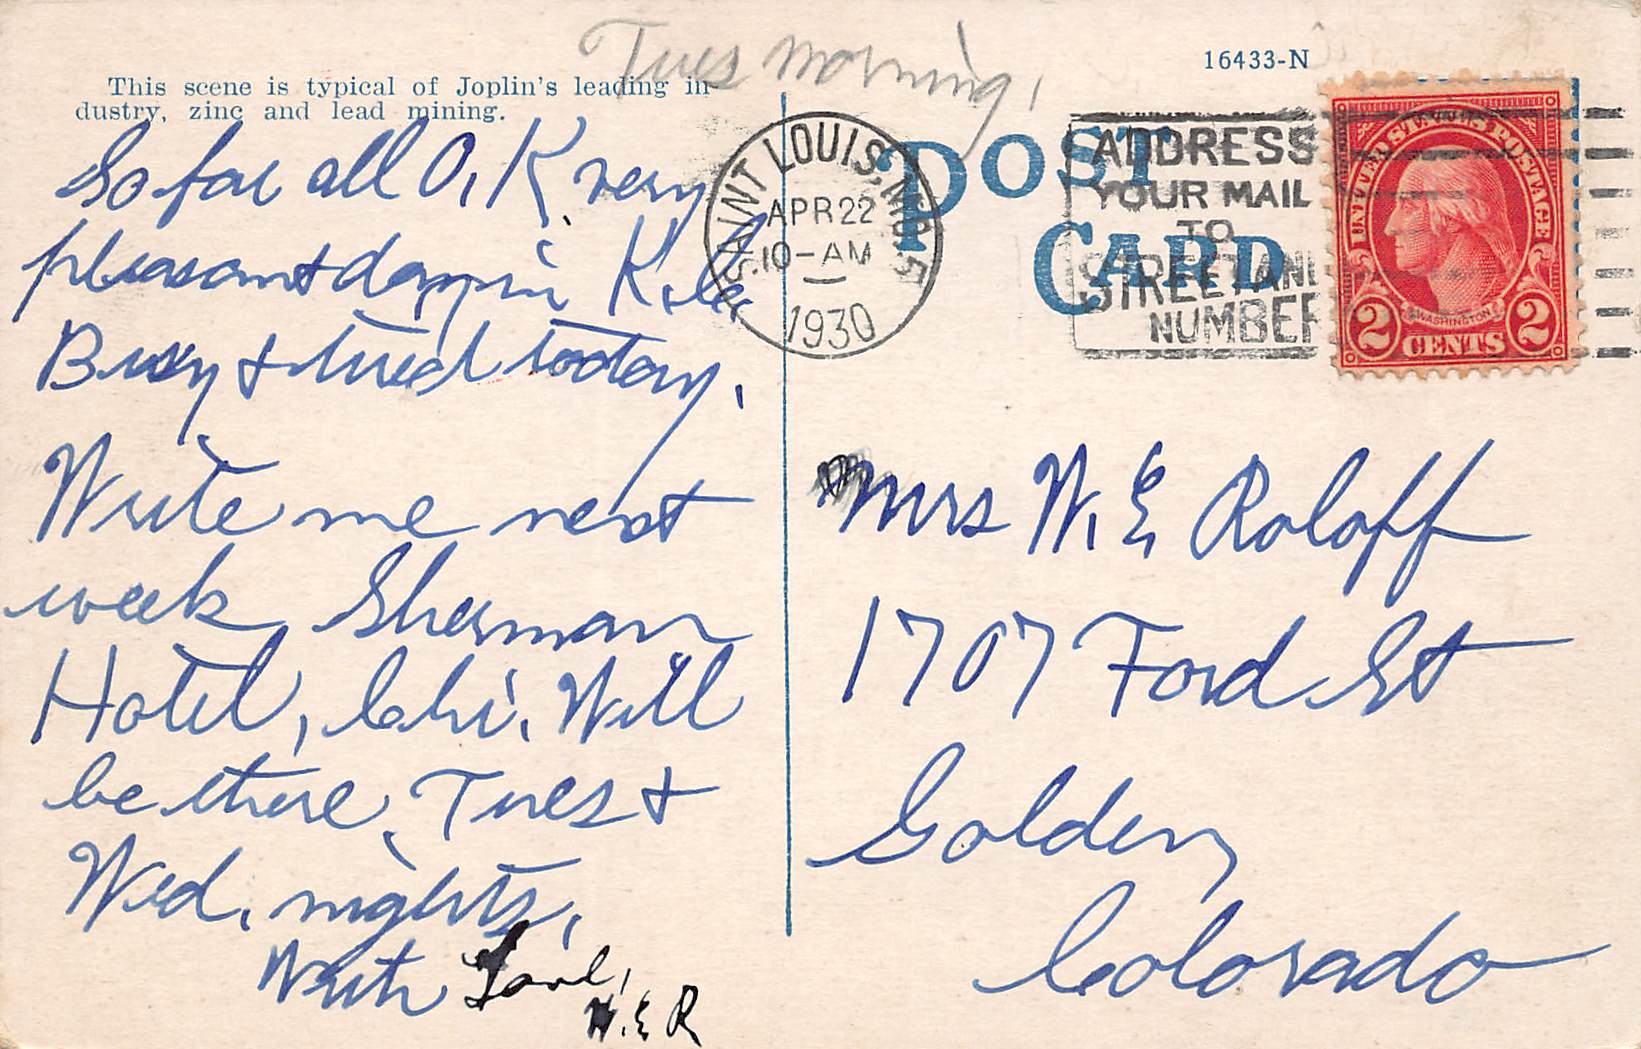 Tues morning,
16433-N
This scene is typical of Joplin's leading in
dustry, zinc and lead mining.
So far all O, K, very
pleasant day in K.C.
Busy & tired today,
Write me next
week Sherman
Hotel, Chi, Will
be there, Tues &
Wed, nights,
With Love,
W. E R
SAINT LOUIS, MO. 5
APR 22
10-AM
1930
POST
CARD
ADDRESS
YOUR MAIL
TO
STREET AND
NUMBER
UNITED STATES POSTAGE
WASHINGTON
2 CENTS 2
Mrs W. E. Roloff
1707 Ford St
Golden,
Colorado